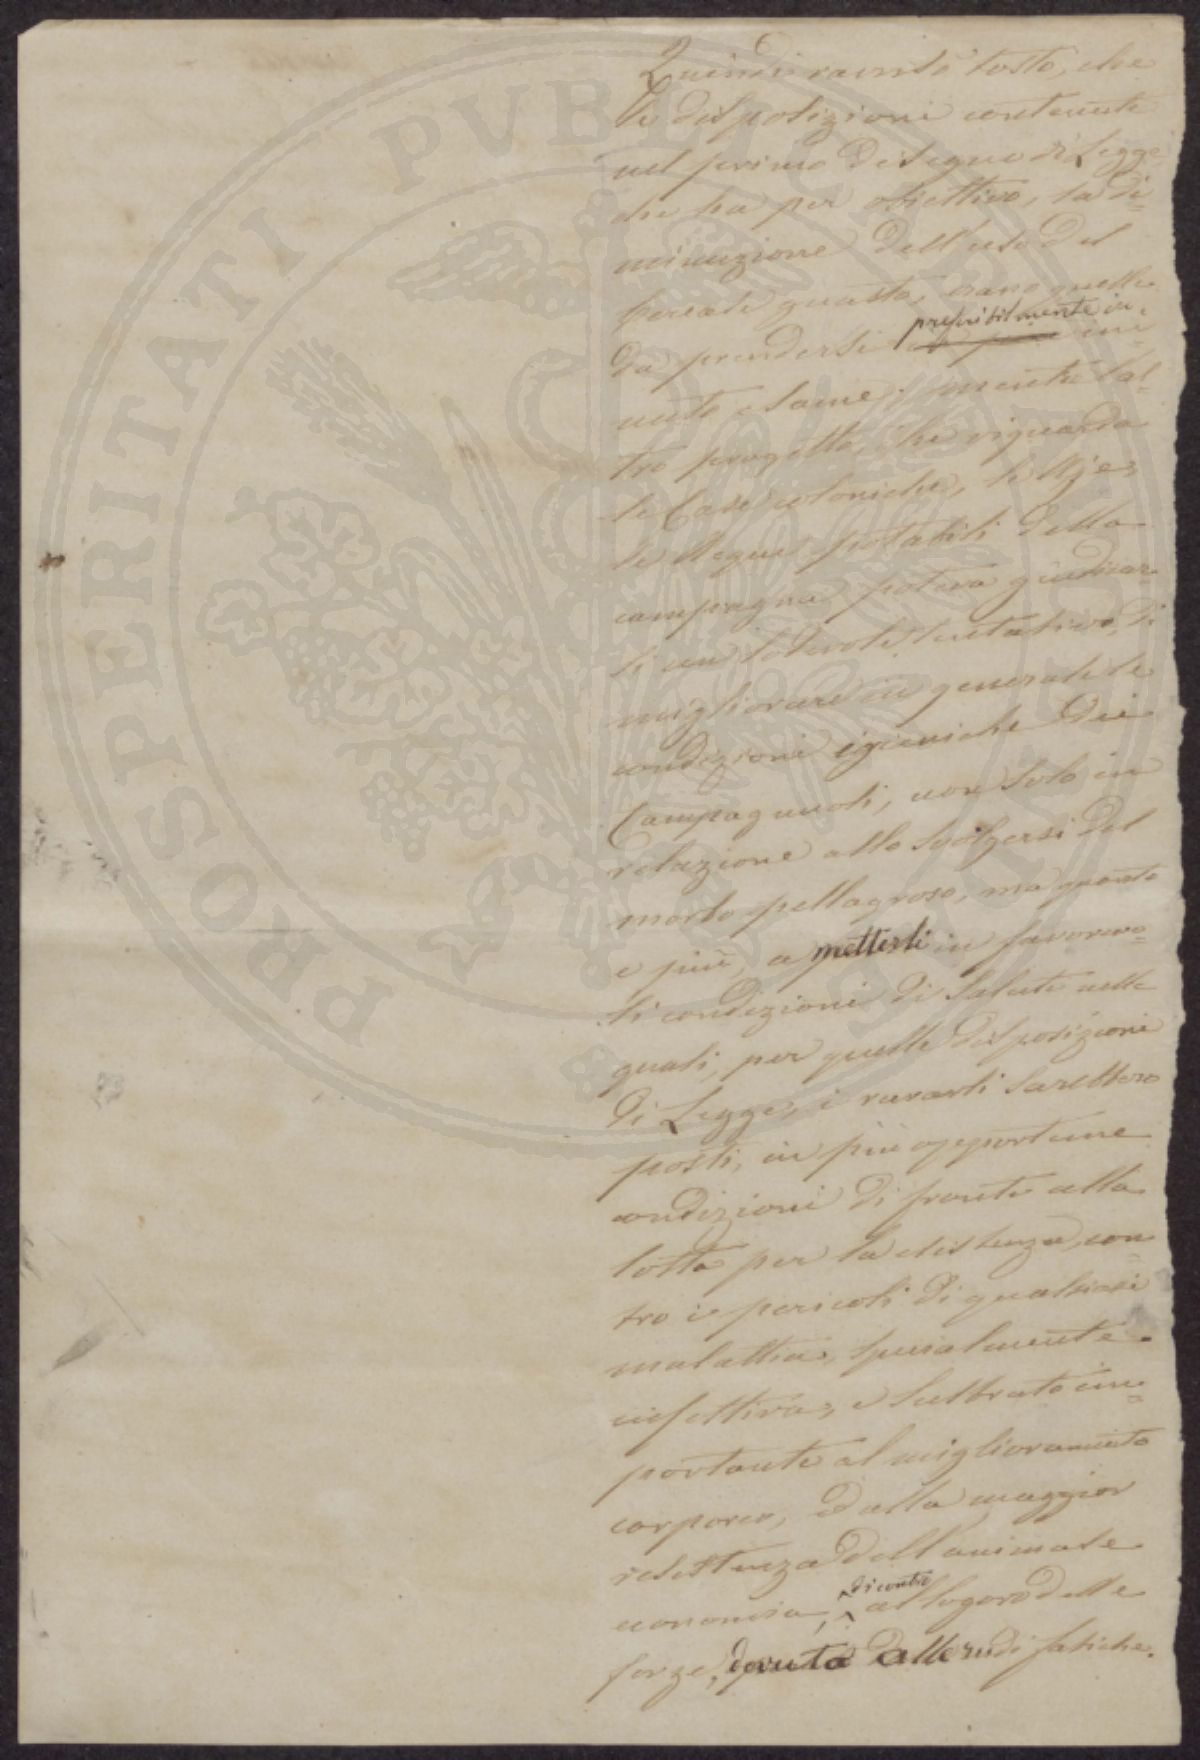 PUBLICAE PROSPERITATI
Quindi ravvisò tosto, che
le disposizioni contenute
nel primo Disegno di Legge
che ha per obiettivo, la di=
minuzione dell'uso del
cereale guasto, erano quelle
da prendersi preferibilmente in
minuto esame; mentre l'al=
tro progetto, che riguarda
le Case coloniche, le
le Acque potabili della
campagna poteva giudicar=
si un lodevole tentativo, di
migliorare in generale le
condizioni igieniche dei
Campagnuoli, non solo in
relazione allo svolgersi del
morbo pellagroso, ma quanto
e più, a metterli in favorevo=
li condizioni di salute nelle
quali, per quelle disposizioni
di Legge, i rurali sarebbero
posti, in più opportune
condizioni di fronte alla
lotta per la esistenza, con
tro i pericoli di qualsiasi
malattia, specialmente
infettiva, e sembrato im=
portante al miglioramento
corporeo, e alla maggior
resistenza dell'animale
economia, di contro al logoro delle
forze, dovuta dalle rudi fatiche.